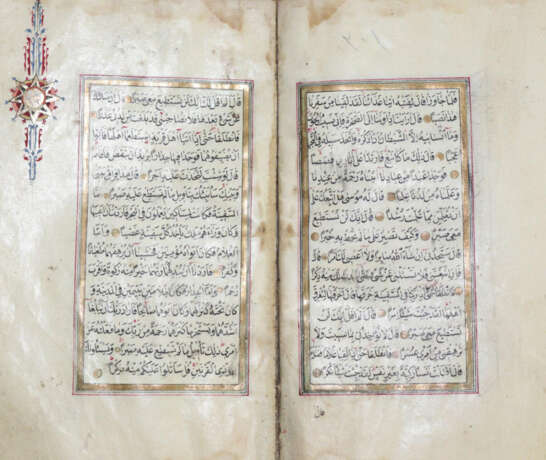 فلما جاوزا قال لفتيه اتنا غداءنا لقد لقينا من سفرنا
هذا نصبا قال ارايت اذ اوينا الى الصخرة فاني نسيت الحوت
وما انسانيه الا الشيطان ان اذكره واتخذ سبيله في البحر
عجبا قال ذلك ما كنا نبغ فارتدا على اثارهما قصصا
فوجدا عبدا من عبادنا اتيناه رحمة من عندنا
وعلمناه من لدنا علما قال له موسى هل اتبعك على
ان تعلمن مما علمت رشدا قال انك لن تستطيع
معي صبرا وكيف تصبر على ما لم تحط به خبرا قال
ستجدني ان شاء الله صابرا ولا اعصي لك امرا قال
فان اتبعتني فلا تسئلني عن شيء حتى احدث لك منه ذكرا
فانطلقا حتى اذا ركبا في السفينة خرقها قال اخرقتها لتغرق
اهلها لقد جئت شيئا امرا قال الم اقل انك لن
تستطيع معي صبرا قال لا تؤاخذني بما نسيت ولا
ترهقني من امري عسرا فانطلقا حتى اذا لقيا غلاما فقتله
قال اقتلت نفسا زكية بغير نفس لقد جئت شيئا نكرا
قال
قال الم اقل لك انك لن تستطيع معي صبرا قال ان سالتك
عن شيء بعدها فلا تصاحبني قد بلغت من لدني عذرا
فانطلقا حتى اذا اتيا اهل قرية استطعما اهلها فابوا
ان يضيفوهما فوجدا فيها جدارا يريد ان ينقض فاقامه
قال لو شئت لتخذت عليه اجرا قال هذا فراق بيني
وبينك سانبئك بتاويل ما لم تستطع عليه صبرا اما
السفينة فكانت لمساكين يعملون في البحر فاردت ان اعيبها
وكان وراءهم ملك ياخذ كل سفينة غصبا واما
الغلام فكان ابواه مؤمنين فخشينا ان يرهقهما طغيانا
وكفرا فاردنا ان يبدلهما ربهما خيرا منه زكوة واقرب
رحما واما الجدار فكان لغلامين يتيمين في المدينة و
كان تحته كنز لهما وكان ابوهما صالحا فاراد ربك ان يبلغا
اشدهما ويستخرجا كنزهما رحمة من ربك وما فعلته عن
امري ذلك تاويل ما لم تسطع عليه صبرا ويسئلونك
عن ذي القرنين قل ساتلوا عليكم منه ذكرا